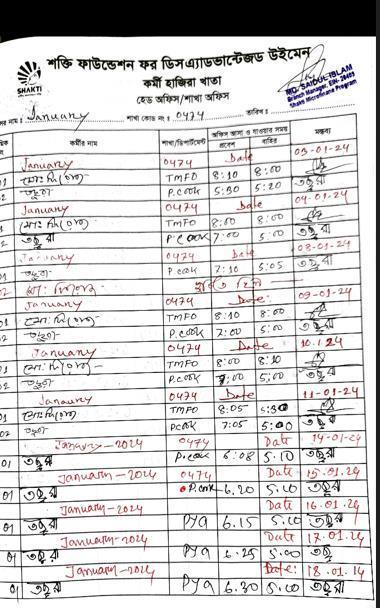 শক্তি ফাউন্ডেশন ফর ডিসএ্যাডভান্টেজড উইমেন
SHAKTI
কর্মী হাজিরা খাতা
হেড অফিস/শাখা অফিস
MD. SAIDUL ISLAM
Branch Manager, EIN-
Shakti Microfinance Program
নাম : January শাখা কোড নং : 0474 তারিখ :
কর্মীর নাম শাখা/ডিপার্টমেন্ট অফিস আসা ও যাওয়ার সময় মন্তব্য
প্রবেশ বাহির
January 0474 Date 03-01-24
01 TMFO 8:10 8:00
02 তহুরা P.cook 5:30 5:20 তহুরা
January 0474 Date 04-01-24
01 TMFO 8:00 8:00
02 তহুরা P.cook 7:00 5:00 তহুরা
January 0474 Date 08-01-24
তহুরা P.cook 7:10 5:05 তহুরা
02 ছুটিতে ছিল
January 0474 Date: 09-01-24
01 TMFO 8:10 8:00
02 তহুরা P.cook 7:00 5:00 তহুরা
January 0474 Date 10.1.24
01 TMFO 8:00 8:10
02 তহুরা P.cook 7:00 5:00 তহুরা
January 0474 Date 11-01-24
01 TMFO 8:05 5:30
02 তহুরা P.cook 7:05 5:00 তহুরা
January-2024 0474 Date 14-01-24
01 তহুরা P.cook 6:08 5.10 তহুরা
January-2024 0474 Date 15.01.24
01 তহুরা P.cook 6.20 5.10 তহুরা
January-2024 Date 16.01.24
01 তহুরা PYa 6.15 5.10 তহুরা
January-2024 Date 17.01.24
01 তহুরা PYa 6.25 5.00 তহুরা
January-2024 Date: 18.01.14
01 তহুরা PYa 6.30 5.10 তহুরা